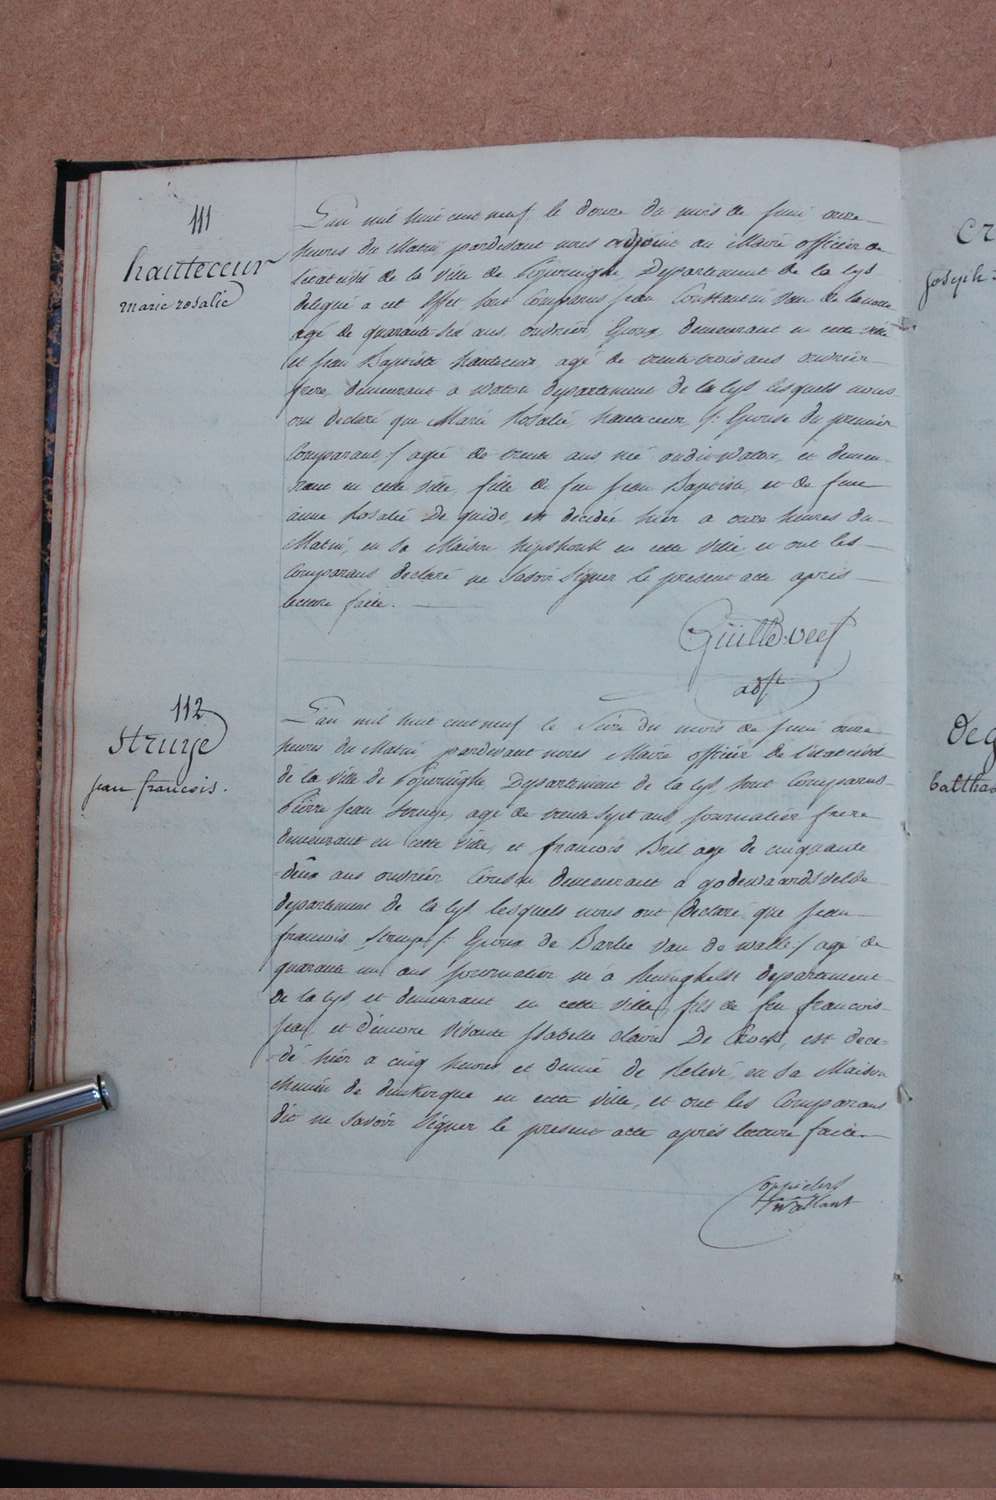 111
hautecœur
marie rosalie
L'an mil huit cent neuf, le douze du mois de juin onze
heures du Matin pardevant nous adjoint au Maire officier de
l'etat civil de la ville de Poperinghe, Departement de la lys
delegué a cet Effet sont Comparus jean Constantin van de
agé de quarante six ans, ouvrier, Epoux, demeurant en cette ville
et jean Baptiste hautecœur, agé de trente trois ans ouvrier
frere, demeurant a Watou departement de la lys lesquels nous
ont declaré que Marie Rosalie, hautecœur, /: Epouse du premier
Comparant / agée de trente ans née audit Watou, et demeu-
rant en cette ville, fille de feu jean Baptiste, et de feue
anne Rosalie De quide, est decedée hier a onze heures du
Matin, en sa Maison hipshouk en cette ville et ont les
Comparans declaré ne savoir signer le present acte après
lecture faite.
adjt
112
Struye
jean francois.
L'an mil huit cent neuf le Seize du mois de juin onze
heures du Matin pardevant nous Maire officier de l'etat civil
de la ville de Poperinghe Departement de la lys sont Comparus
Pierre jean Struye, agé de trente sept ans journalier frere
demeurant en cette ville, et francois Bril agé de cinquante
deux ans ouvrier Cousin demeurant a godewaardsvelde
departement de la lys lesquels nous ont declare que jean
francois Struye /: Epoux de Barbe van de walle / agé de
quarante un ans journalier né a departement
de la lys et demeurant en cette ville, fils de feu francois
jean et d'encore vivante Isabelle claire De Cock, est dece-
dé hier a cinq heures et demie de Relevé, en sa Maison
chemin de dunkerque en cette ville, et ont les Comparans
dit ne savoir signer le present acte après lecture faite.
cr
joseph
Deg
balthas